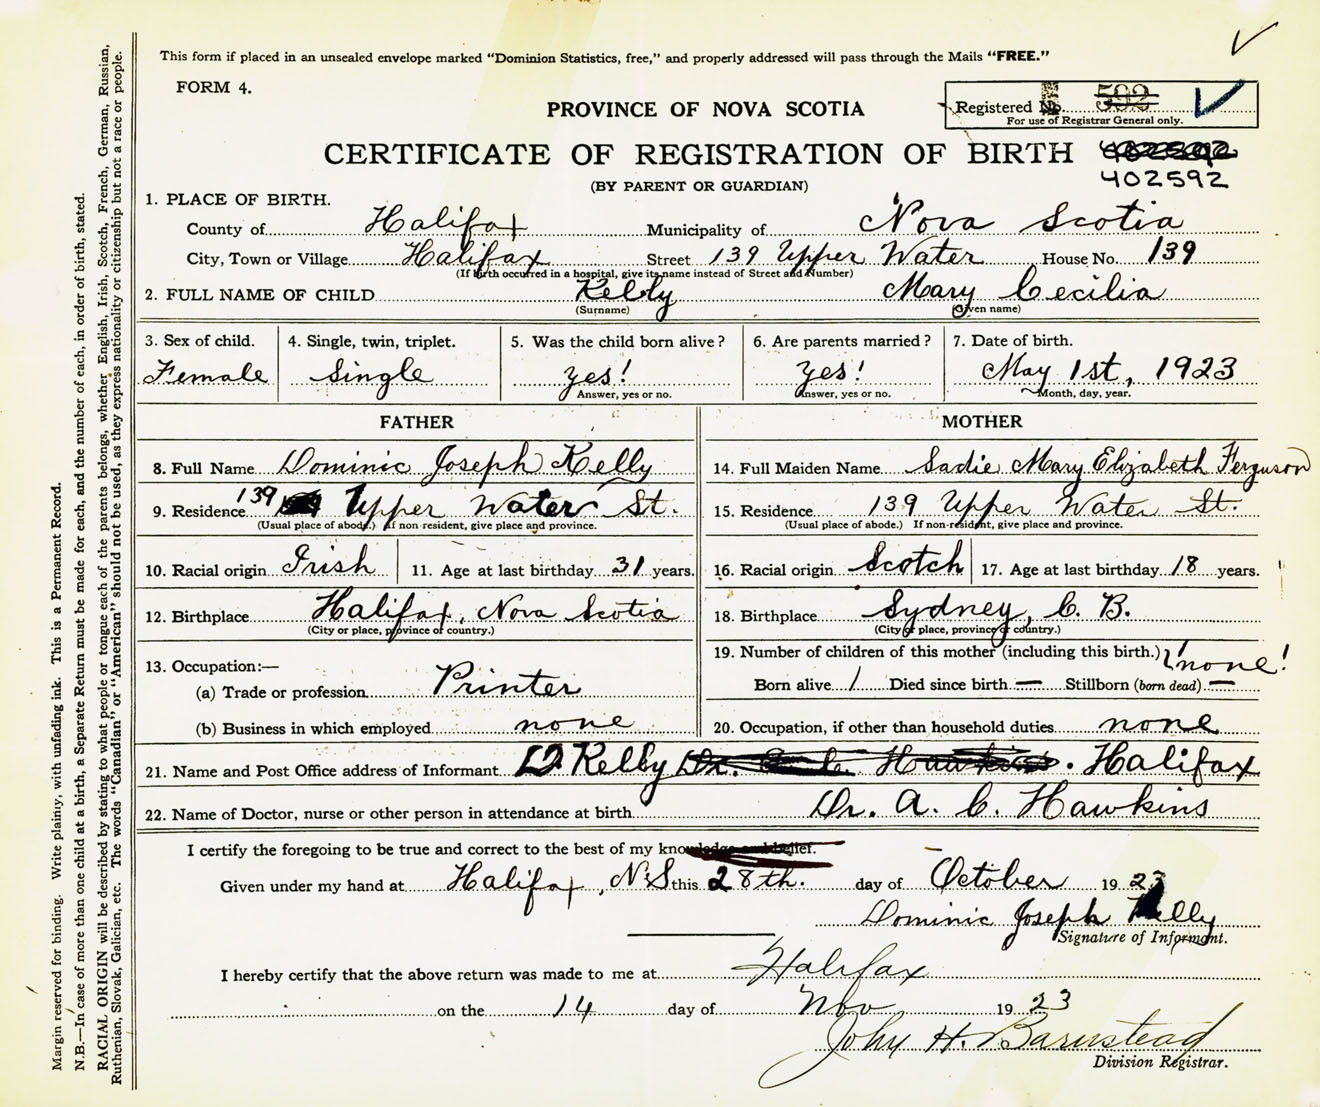 This form if placed in an unsealed envelope marked “Dominion Statistics, free,” and properly addressed will pass through the Mails “FREE.”
FORM 4.
PROVINCE OF NOVA SCOTIA
Registered No. 592
For use of Registrar General only.
CERTIFICATE OF REGISTRATION OF BIRTH 402592
402592
(BY PARENT OR GUARDIAN)
1. PLACE OF BIRTH.
County of Halifax Municipality of Nova Scotia
City, Town or Village Halifax Street 139 Upper Water House No. 139
(If birth occurred in a hospital, give its name instead of Street and Number)
2. FULL NAME OF CHILD Kelly Mary Cecilia
(Surname) (Given name)
3. Sex of child. 4. Single, twin, triplet. 5. Was the child born alive? 6. Are parents married? 7. Date of birth.
Female Single yes! yes! May 1st, 1923
Answer, yes or no. Answer, yes or no. Month, day, year.
FATHER MOTHER
8. Full Name Dominic Joseph Kelly 14. Full Maiden Name Sadie Mary Elizabeth Ferguson
9. Residence 139 Upper Water St. 15. Residence 139 Upper Water St.
(Usual place of abode.) If non-resident, give place and province. (Usual place of abode.) If non-resident, give place and province.
10. Racial origin Irish 11. Age at last birthday 31 years. 16. Racial origin Scotch 17. Age at last birthday 18 years.
12. Birthplace Halifax, Nova Scotia 18. Birthplace Sydney, C. B.
(City or place, province or country.) (City or place, province or country.)
13. Occupation:— 19. Number of children of this mother (including this birth.) 1 none!
(a) Trade or profession Printer Born alive 1 Died since birth — Stillborn (born dead) —
(b) Business in which employed none 20. Occupation, if other than household duties none
21. Name and Post Office address of Informant D Kelly Dr. Hawkins. Halifax
22. Name of Doctor, nurse or other person in attendance at birth Dr. A. C. Hawkins
I certify the foregoing to be true and correct to the best of my knowledge and belief.
Given under my hand at Halifax, N.S this 28th. day of October 1923
Dominic Joseph Kelly
Signature of Informant.
I hereby certify that the above return was made to me at Halifax
on the 14 day of Nov 1923
John H. Barnstead
Division Registrar.
Margin reserved for binding. Write plainly, with unfading ink. This is a Permanent Record.
N.B.—In case of more than one child at a birth, a Separate Return must be made for each, and the number of each, in order of birth, stated.
RACIAL ORIGIN will be described by stating to what people or tongue each of the parents belongs, whether English, Irish, Scotch, French, German, Russian,
Ruthenian, Slovak, Galician, etc. The words “Canadian” or “American” should not be used, as they express nationality or citizenship but not a race or people.